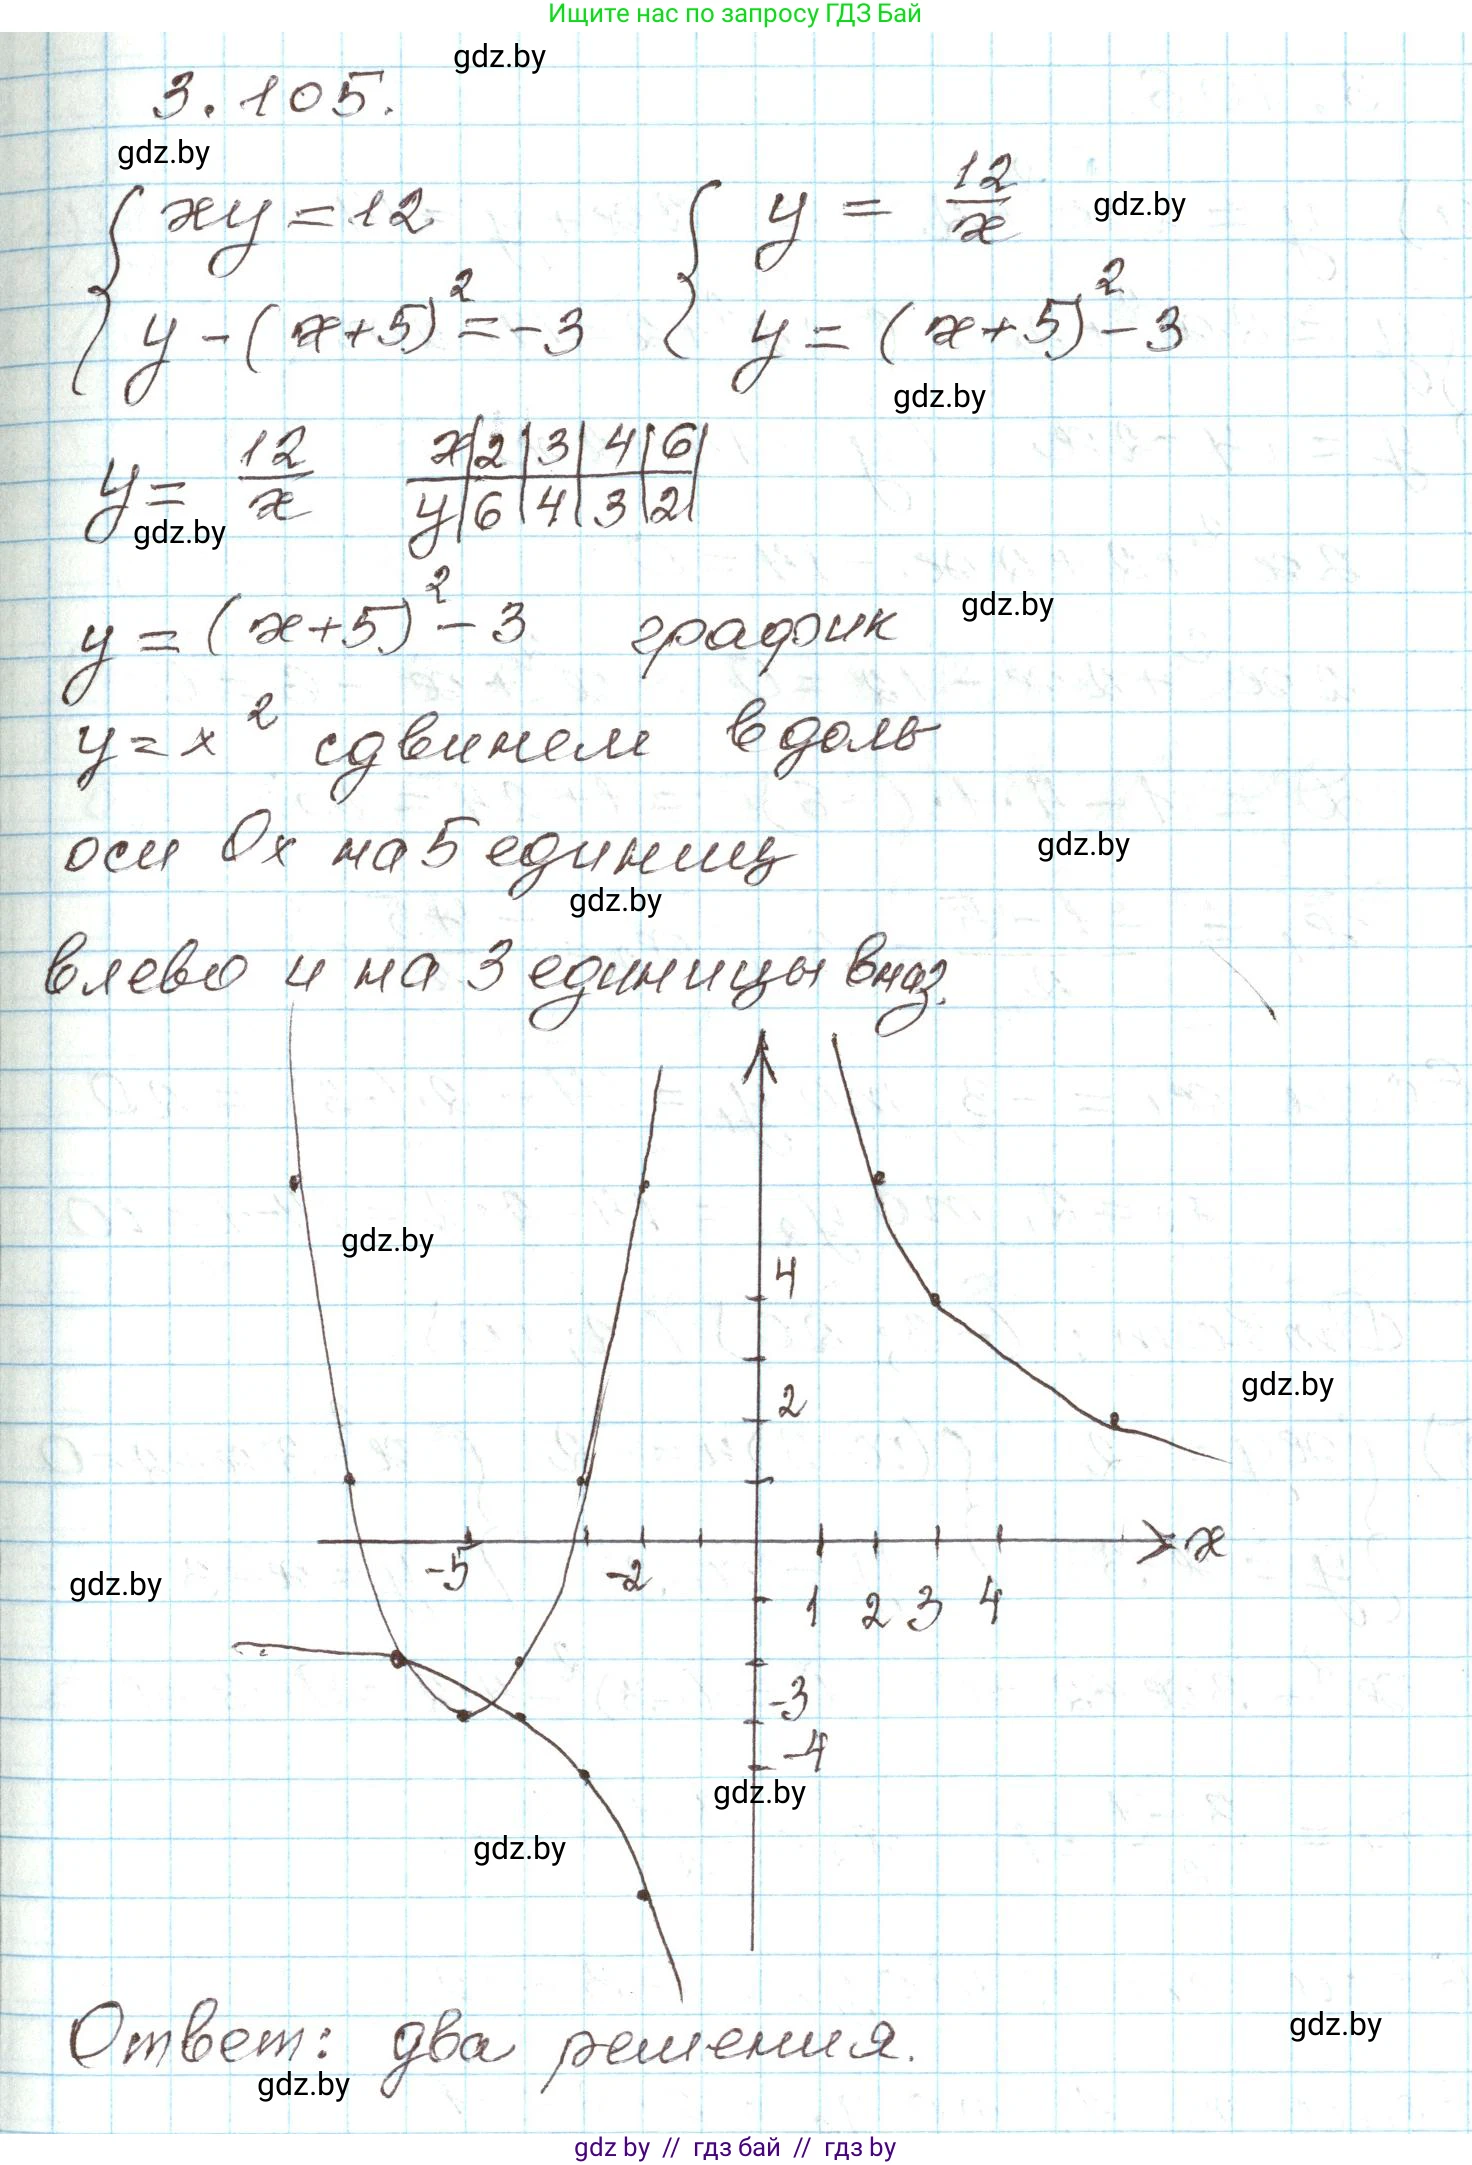 Ищите нас по запросу ГДЗ Бай
gdz.by
3.105.
gdz.by
{ xy = 12 { y = 12/x
gdz.by
y - (x+5)² = -3 y = (x+5)² - 3
gdz.by
y = 12/x x | 2 | 3 | 4 | 6 |
y | 6 | 4 | 3 | 2 |
gdz.by
y = (x+5)² - 3 график
gdz.by
y = x² сдвинем вдоль
оси Ох на 5 единиц
gdz.by
gdz.by
влево и на 3 единицы вниз.
gdz.by
4
gdz.by
2
x
-5 -2 1 2 3 4
gdz.by
-3
-4
gdz.by
gdz.by
Ответ: два решения.
gdz.by
gdz.by
gdz by // гдз бай // гдз by